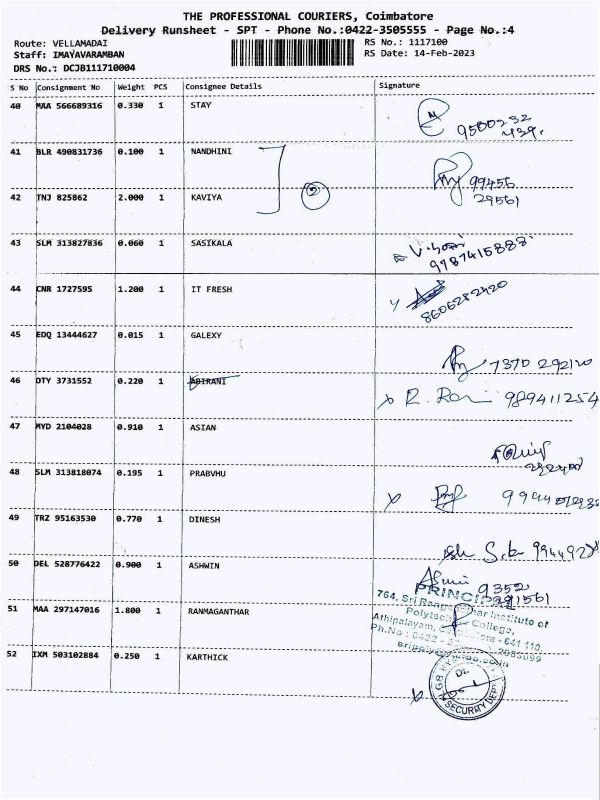 THE PROFESSIONAL COURIERS, Coimbatore
Delivery Runsheet - SPT - Phone No.:0422-3505555 - Page No.:4
Route: VELLAMADAI RS No.: 1117100
Staff: IMAYAVARAMBAN RS Date: 14-Feb-2023
DRS No.: DCJB111710004
S No Consignment No Weight PCS Consignee Details Signature
40 MAA 566689316 0.330 1 STAY
9500232
439.
41 BLR 490831736 0.100 1 NANDHINI
99456
29561
42 TNJ 825862 2.000 1 KAVIYA
43 SLM 313827836 0.060 1 SASIKALA
9787415888
44 CNR 1727595 1.200 1 IT FRESH
8606282420
45 EDQ 13444627 0.015 1 GALEXY
7370 292120
46 DTY 3731552 0.220 1 ABIRANI
989411254
47 MYD 2104028 0.910 1 ASIAN
48 SLM 313818074 0.195 1 PRABVHU
49 TRZ 95163530 0.770 1 DINESH
50 DEL 528776422 0.900 1 ASHWIN
9352
PRINCIPAL
51 MAA 297147016 1.800 1 RANMAGANTHAR
764, Sri Institute of
Polytechnic College,
Athipalayam, - 641 110.
Ph.No : 0422 2083099
52 IXM 503102884 0.250 1 KARTHICK
SECURITY DEPT